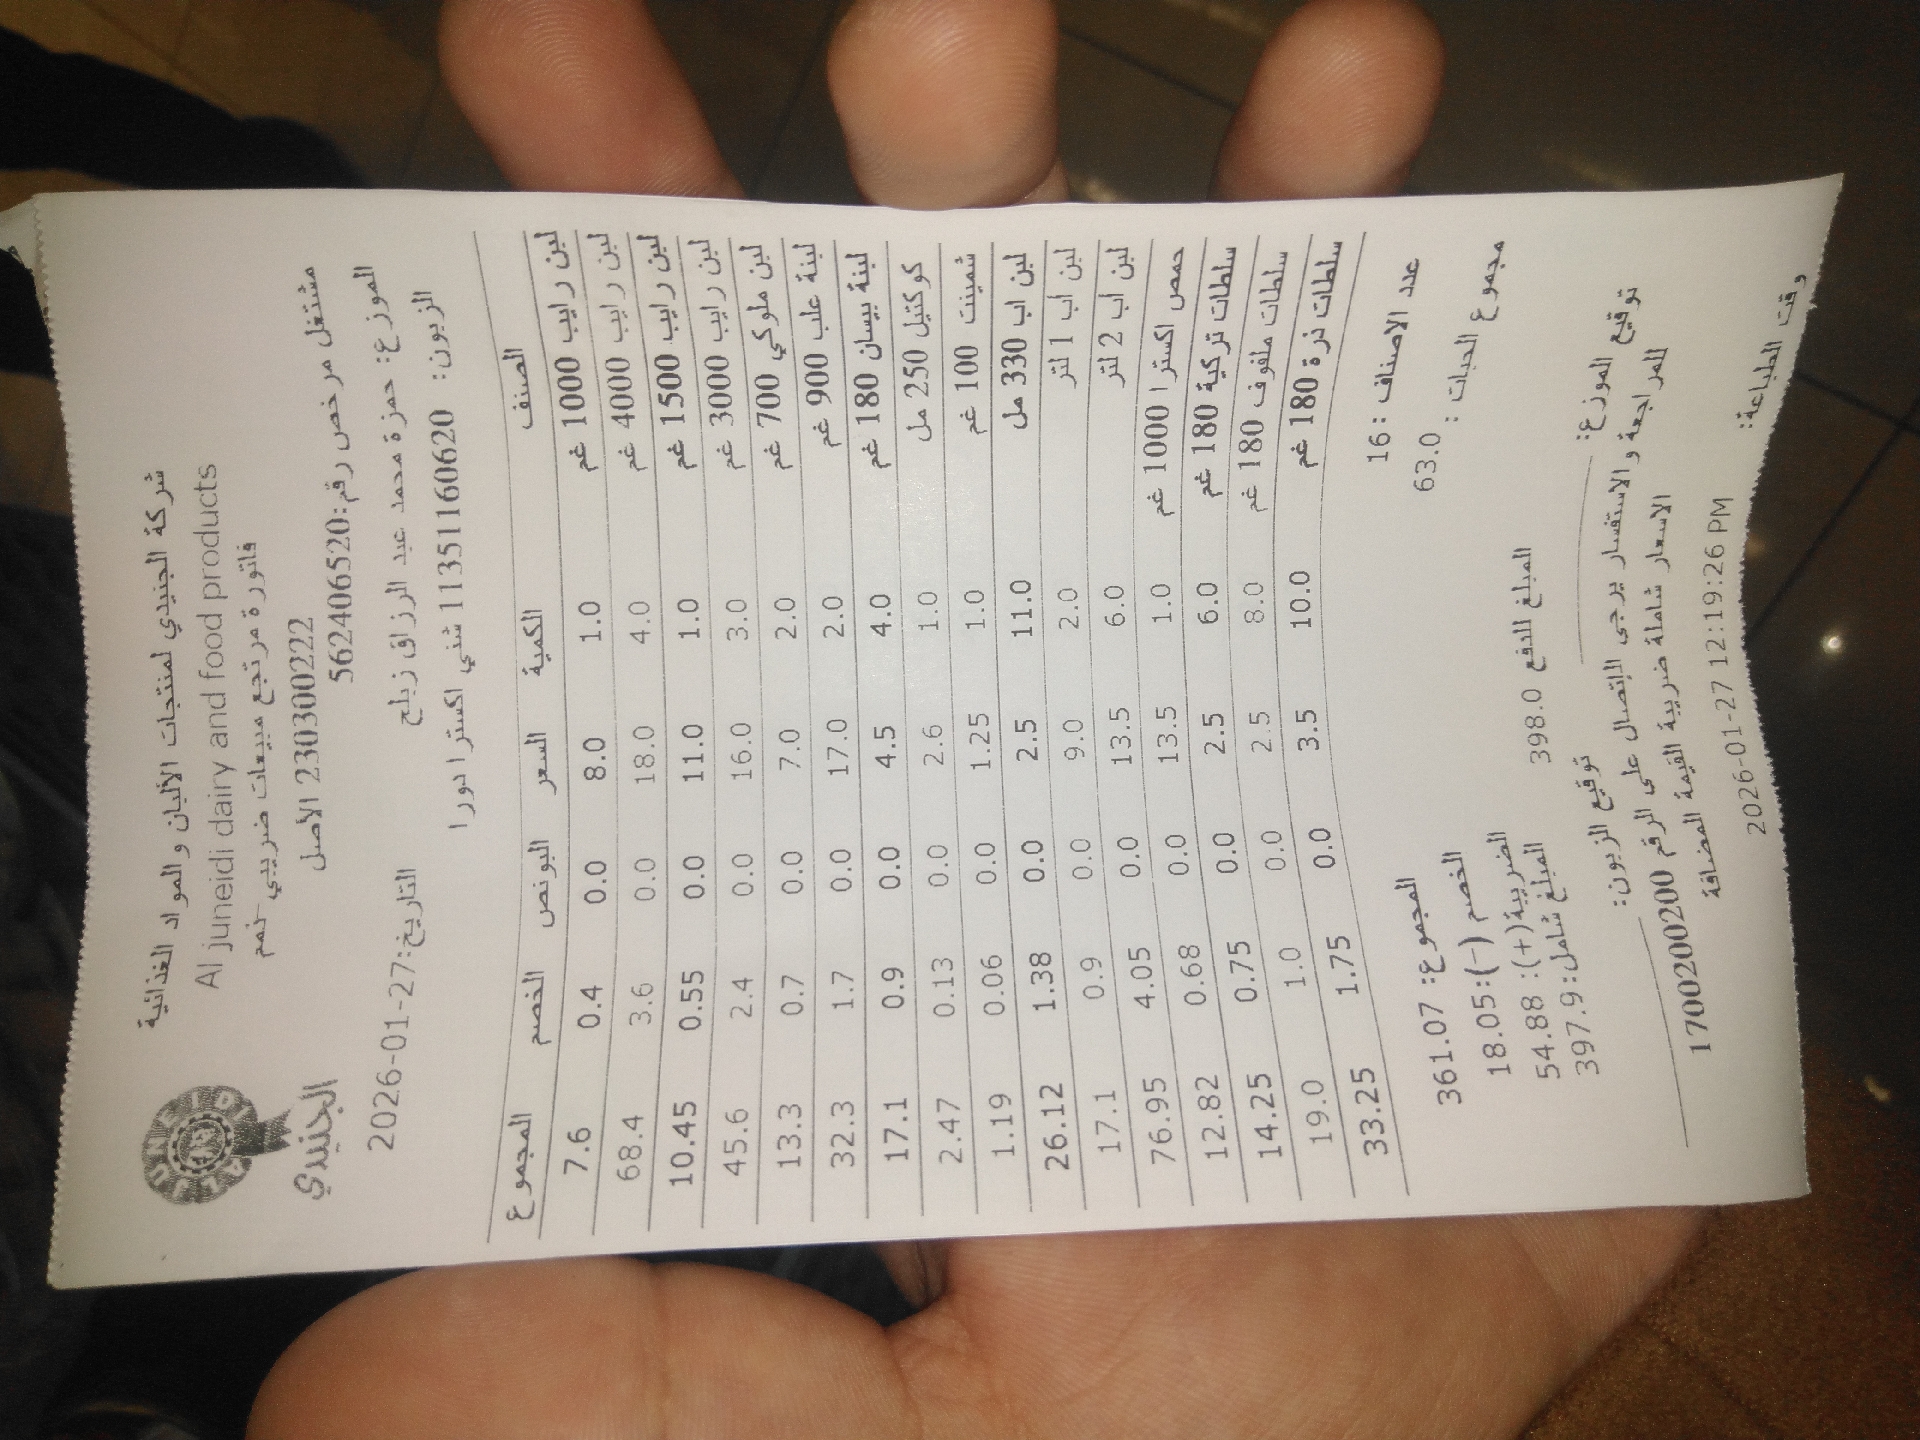 شركة الجنيدي لمنتجات الألبان والمواد الغذائية
Al juneidi dairy and food products
فاتورة مرتجع مبيعات ضريبي -نمم
230300222 الأصل
مشتغل مرخص رقم:562406520
AL JUNEIDI
الجنيدي
الموزع: حمزة محمد عبد الرزاق زبلح
التاريخ:27-01-2026
الزبون: 11351160620 شني اكسترا دورا
الصنف الكمية السعر البونص الخصم المجموع
لبن رايب 1000 غم 1.0 8.0 0.0 0.4 7.6
لبن رايب 4000 غم 4.0 18.0 0.0 3.6 68.4
لبن رايب 1500 غم 1.0 11.0 0.0 0.55 10.45
لبن رايب 3000 غم 3.0 16.0 0.0 2.4 45.6
لبن ملوكي 700 غم 2.0 7.0 0.0 0.7 13.3
لبنة علب 900 غم 2.0 17.0 0.0 1.7 32.3
لبنة بيسان 180 غم 4.0 4.5 0.0 0.9 17.1
كوكتيل 250 مل 1.0 2.6 0.0 0.13 2.47
شمينت 100 غم 1.0 1.25 0.0 0.06 1.19
لبن اب 330 مل 11.0 2.5 0.0 1.38 26.12
لبن اب 1 لتر 2.0 9.0 0.0 0.9 17.1
لبن اب 2 لتر 6.0 13.5 0.0 4.05 76.95
حمص اكسترا 1000 غم 1.0 13.5 0.0 0.68 12.82
سلطات تركية 180 غم 6.0 2.5 0.0 0.75 14.25
سلطات ملفوف 180 غم 8.0 2.5 0.0 1.0 19.0
سلطات ذرة 180 غم 10.0 3.5 0.0 1.75 33.25
عدد الاصناف : 16
المجموع: 361.07
مجموع الحبات : 63.0
الخصم (-):18.05
الضريبة(+): 54.88
المبلغ للدفع 398.0
المبلغ شامل:397.9
توقيع الموزع:
توقيع الزبون:
للمراجعة والاستفسار يرجى الإتصال على الرقم 1700200200
الاسعار شاملة ضريبة القيمة المضافة
وقت الطباعة:
2026-01-27 12:19:26 PM